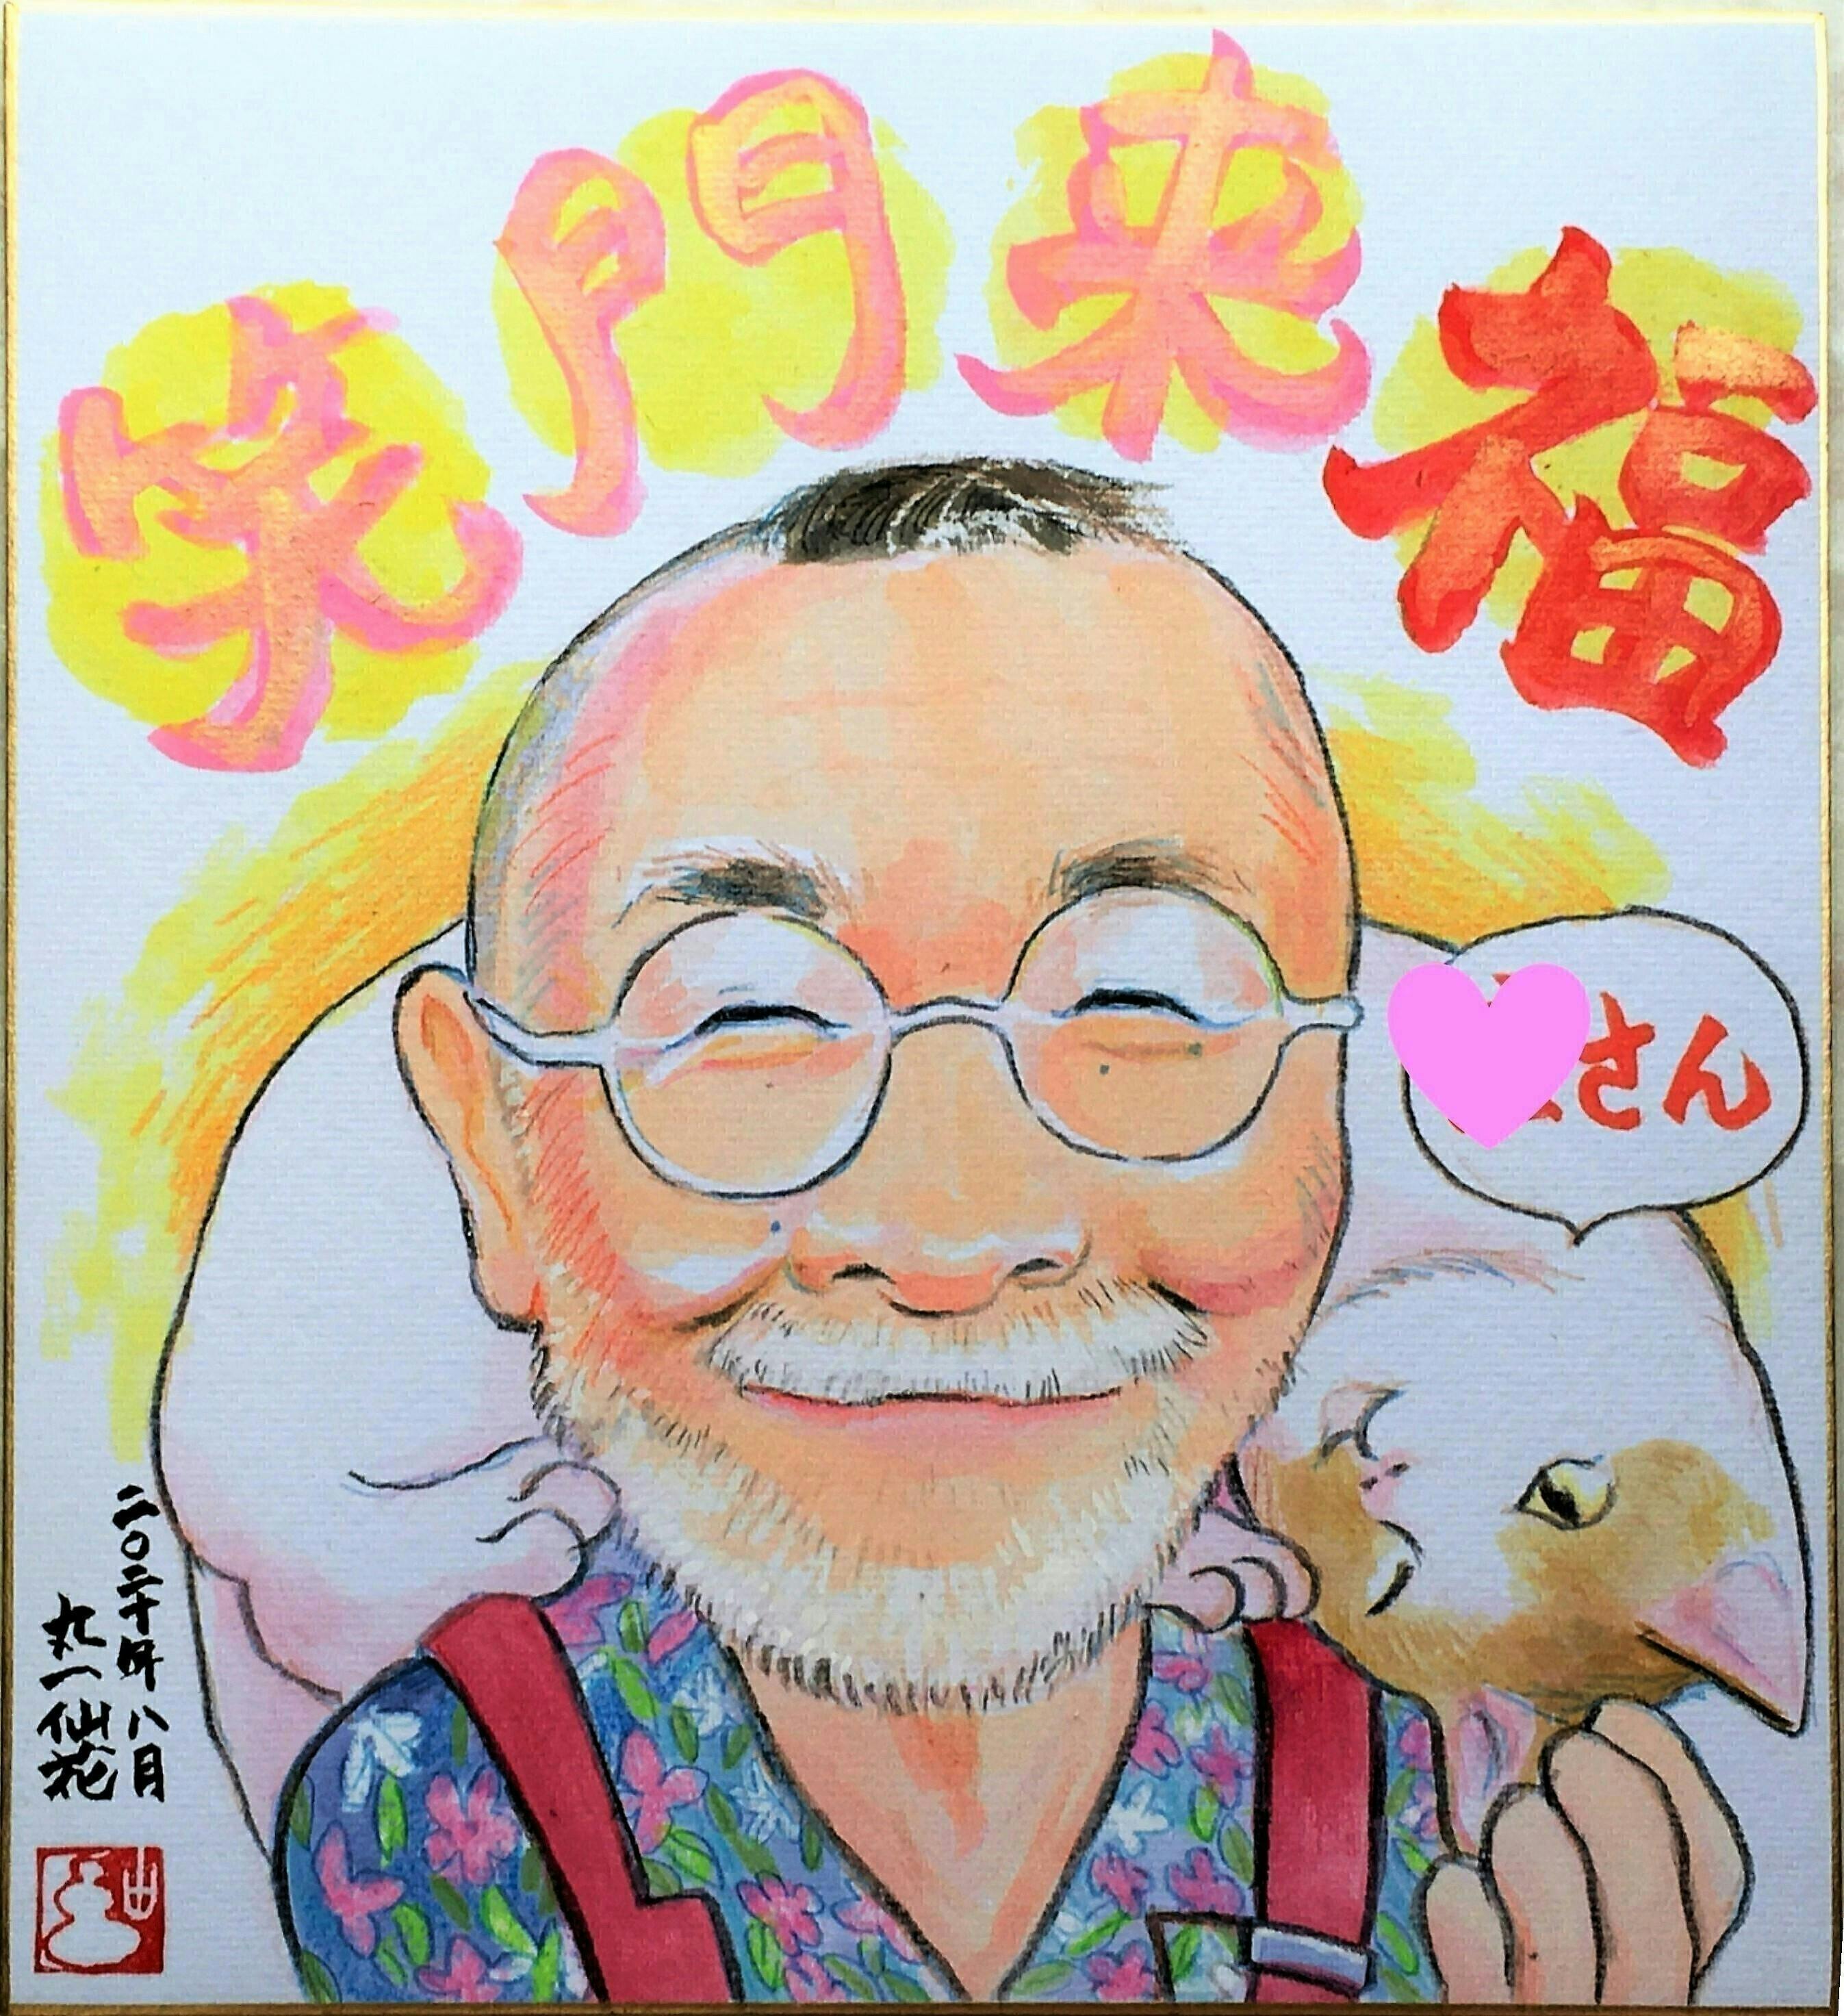 笑門来福
さん
二〇二十年八月
丸一仙花